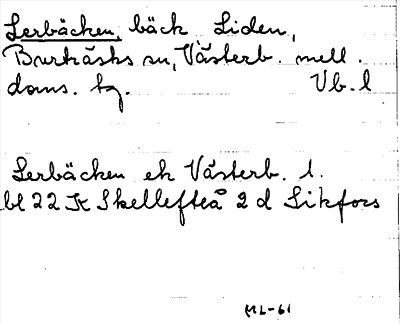 Lerbäcken, bäck Liden,
Burträsks sn, Västerb. mell.
doms. tg. Vb. l
Lerbäcken ek Västerb. l.
bl 22 K Skellefteå 2 d Sikfors
ML-61